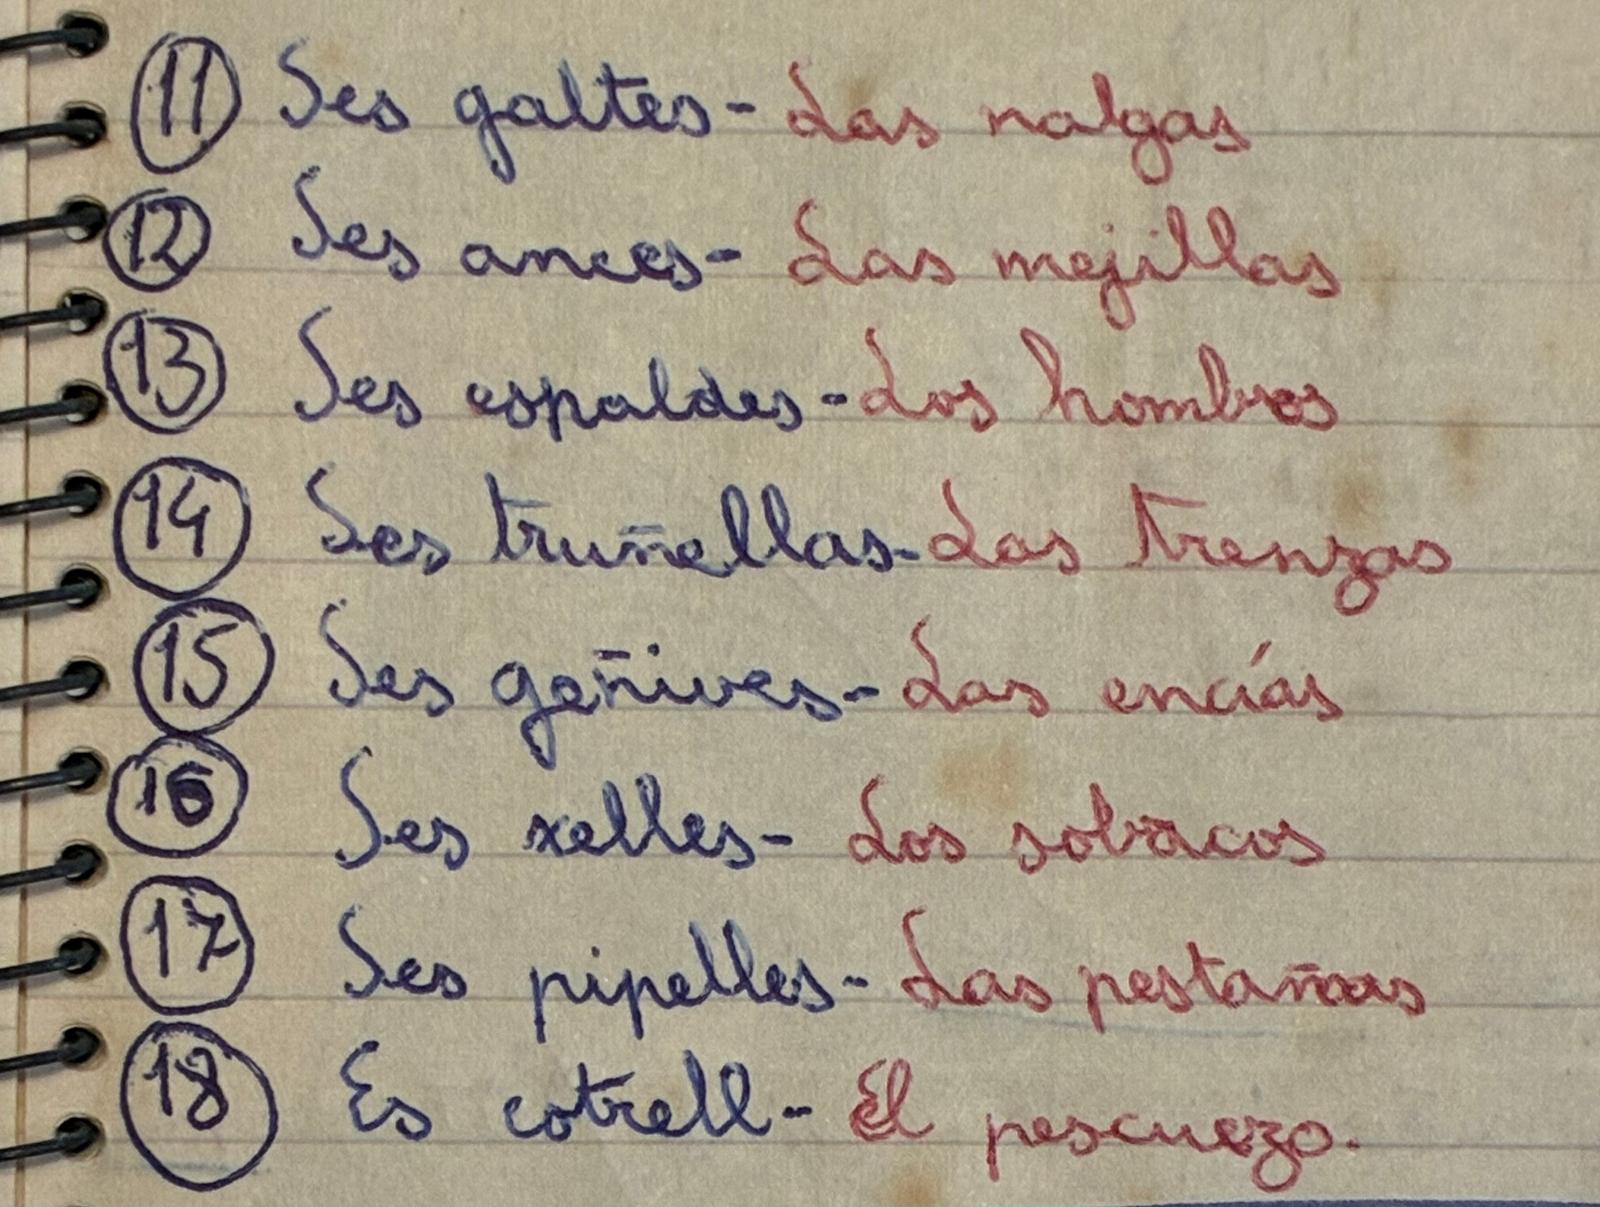 11 Ses galtes - Las nalgas
12 Ses ances - Las mejillas
13 Ses espaldes - Los hombros
14 Ses truñellas - Las trenzas
15 Ses geñives - Las encías
16 Ses xelles - Los sobacos
17 Ses pipelles - Las pestañas
18 Es cotrell - El pescuezo.